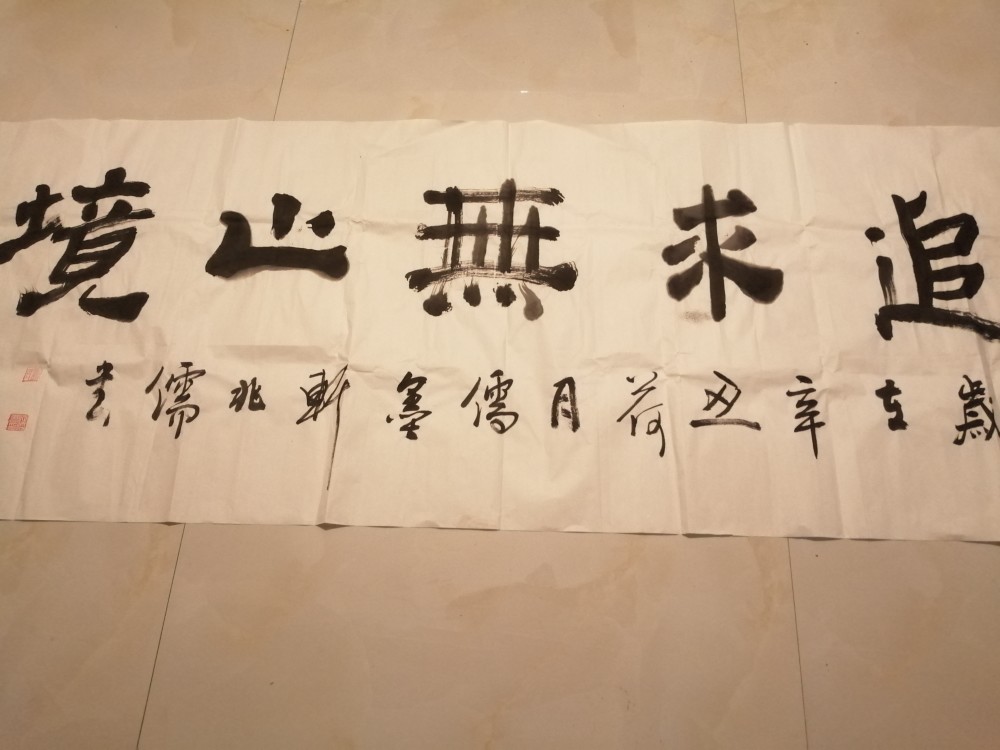 追求無止境
歲在辛丑荷月儒墨軒兆儒書